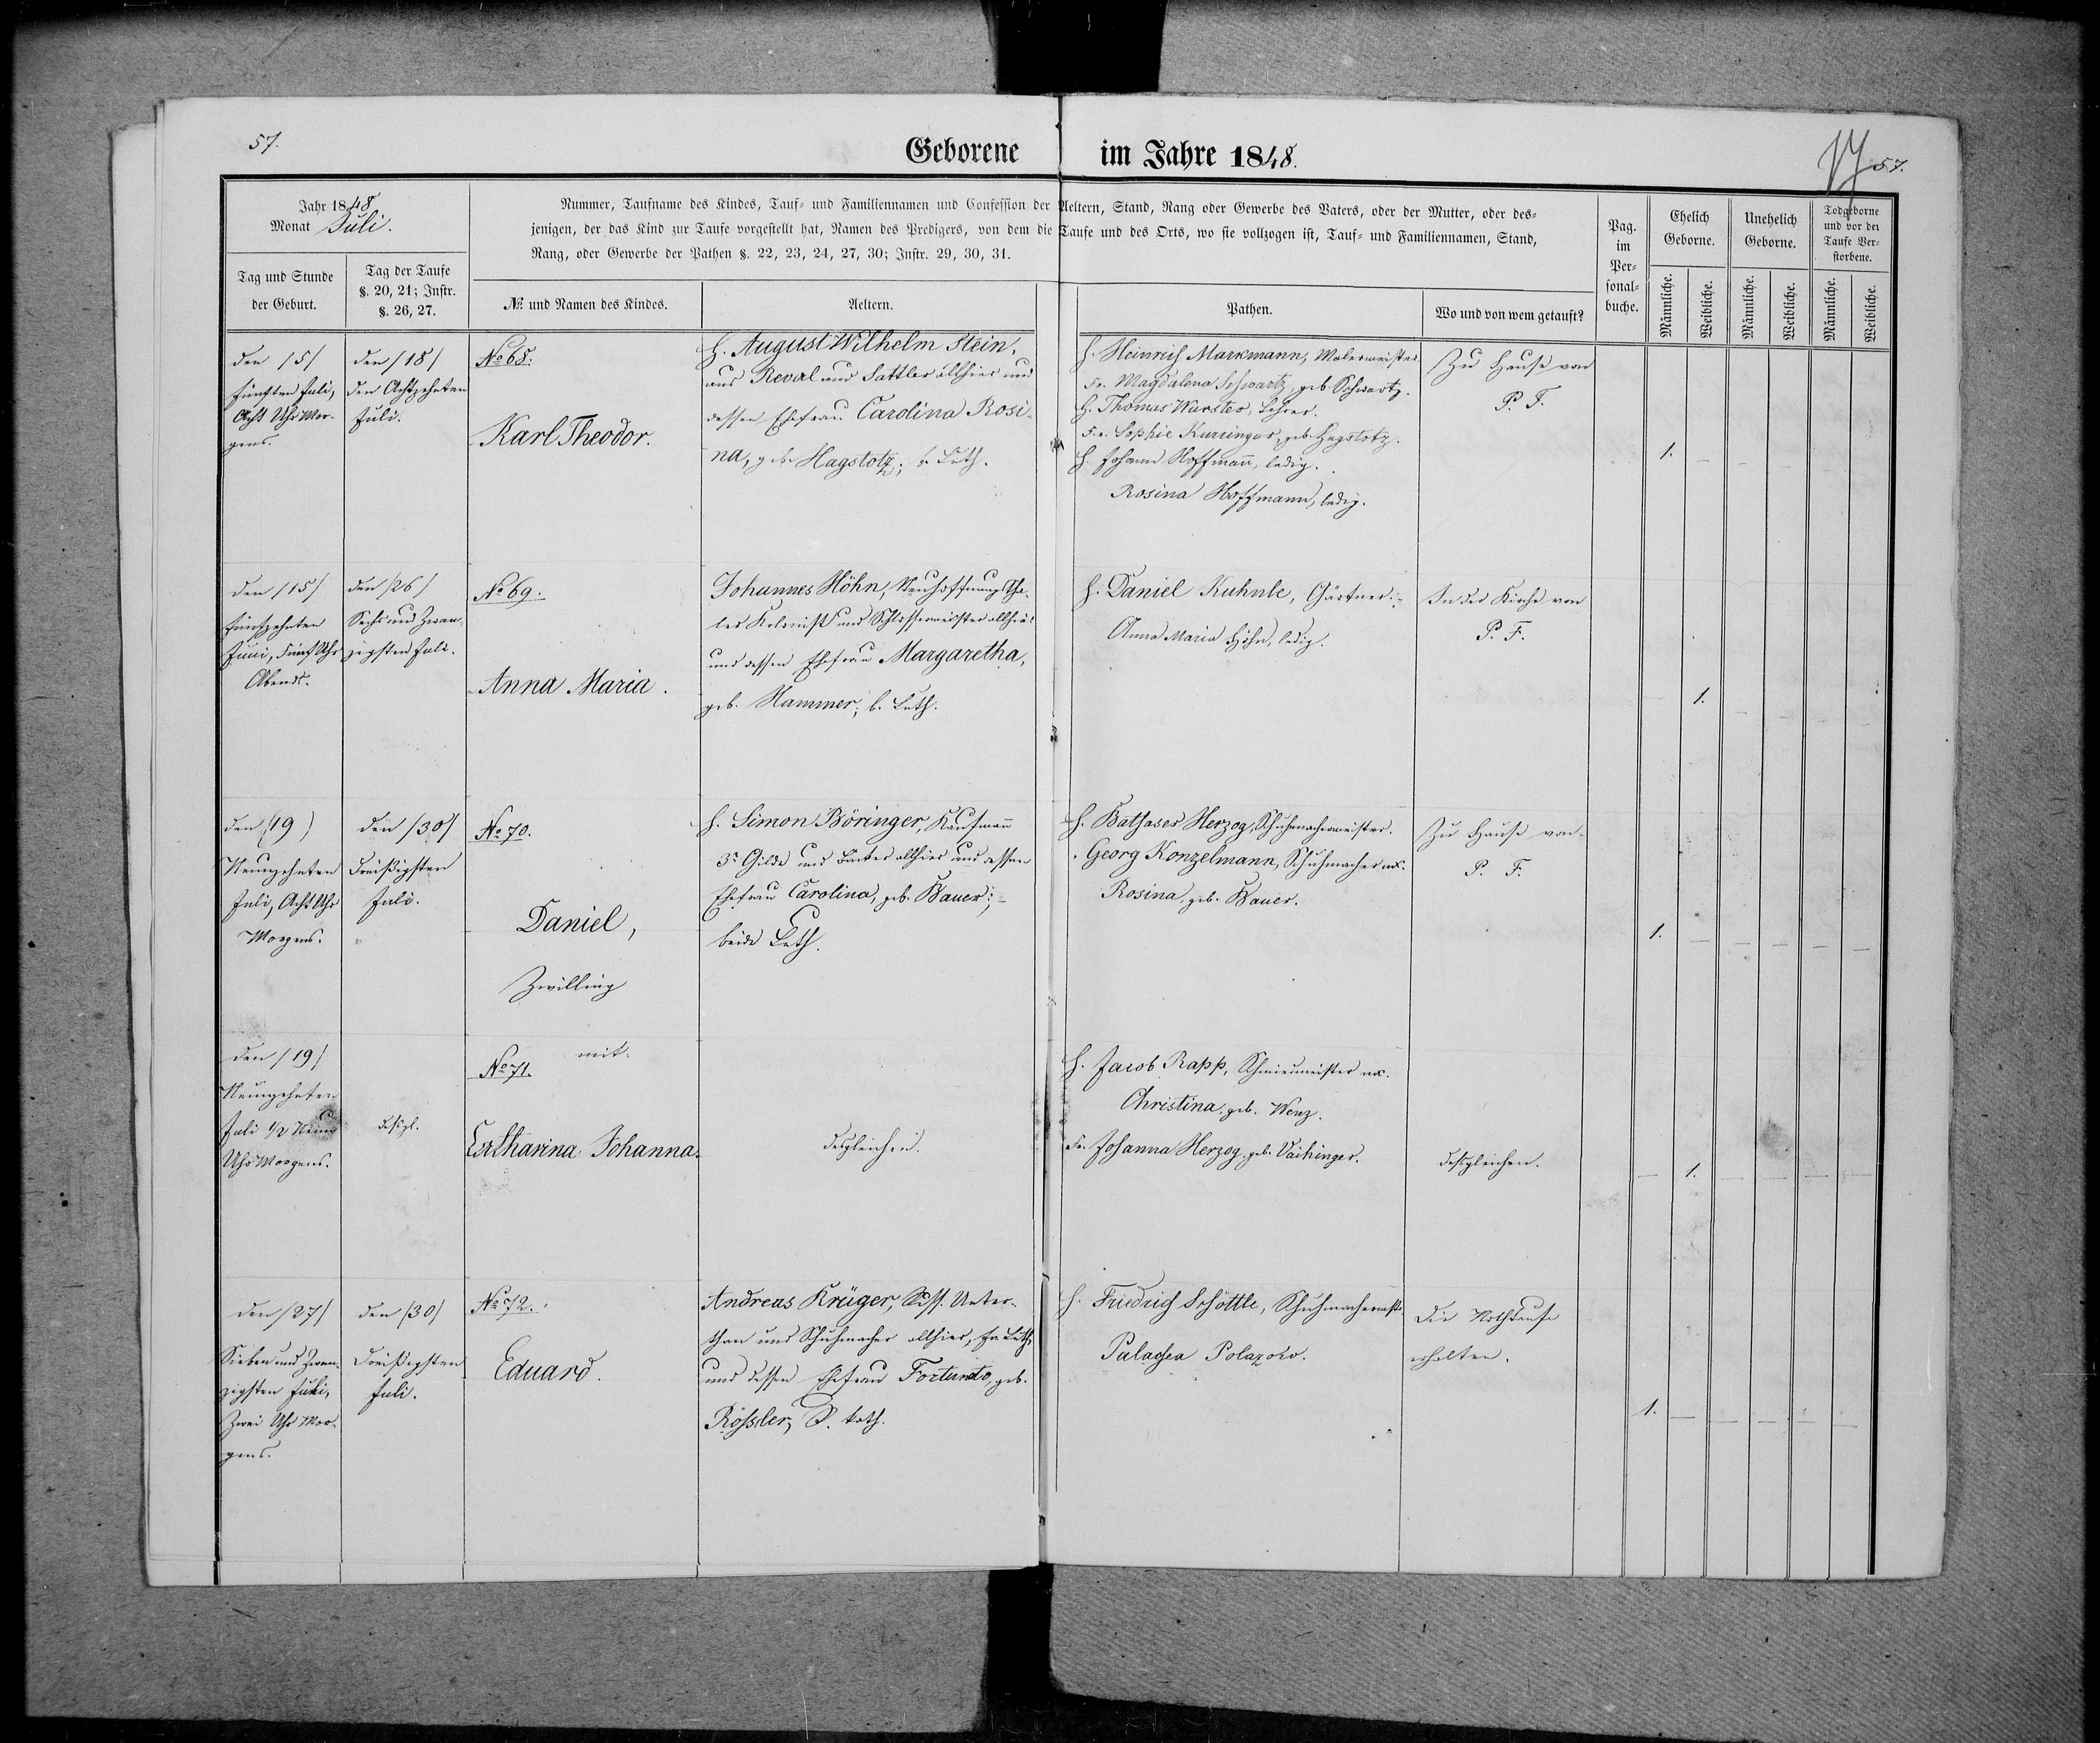 57.
Geborene im Jahre 1848.
57.
Jahr 1848
Monat Juli.
Nummer, Taufname des Kindes, Tauf- und Familiennamen und Confession der Aeltern, Stand, Rang oder Gewerbe des Vaters, oder der Mutter, oder des-
jenigen, der das Kind zur Taufe vorgestellt hat, Namen des Predigers, von dem die Taufe und des Orts, wo sie vollzogen ist, Tauf- und Familiennamen, Stand,
Rang, oder Gewerbe der Pathen §. 22, 23, 24, 27, 30; Instr. 29, 30, 31.
Tag und Stunde
der Geburt.
Tag der Taufe
§. 20, 21; Instr.
§. 26, 27.
№ und Namen des Kindes.
Aeltern.
Pathen.
Wo und von wem getauft?
Pag.
im
Per-
sonal-
buche.
Ehelich
Geborne.
Unehelich
Geborne.
Todgeborne
und vor der
Taufe Ver-
storbene.
Männliche.
Weibliche.
Männliche.
Weibliche.
Männliche.
Weibliche.
den /5/
fünften Juli,
Acht Uhr Mor-
gens.
den /18/
den Achtzehnten
Juli.
No 68.
Karl Theodor.
H. August Wilhelm Stein,
aus Reval und Sattler allhier und
dessen Ehefrau Carolina Rosi-
na, geb. Hagstotz; b. Luth.
H. Heinrich Markmann, Malermeister.
Fr. Magdalena Schwartz, geb. Schwartz.
H. Thomas Wurster, Lehrer.
Fr. Sophie Kurringer, geb. Hagstotz.
H. Johann Hoffmann, ledig.
Rosina Hoffmann, ledig.
Zu Hause von
P. F.
1.
den /15/
Fünfzehnten
Juni, Fünf Uhr
Abends.
den /26/
Sechs und Zwan-
zigsten Juli.
No 69.
Anna Maria.
Johannes Höhn, Neuhoffnungstha-
ler Kolonist und Schlossermeister allhier
und dessen Ehefrau Margaretha,
geb. Hammer; b. Luth.
H. Daniel Kuhnle, Gärtner.
Anna Maria Höhn, ledig.
In der Kirche von
P. F.
1.
den (19)
Neunzehnten
Juli, Acht Uhr
Morgens.
den /30/
Dreißigsten
Juli.
No 70.
Daniel,
Zwilling
mit
H. Simon Böringer, Kaufmann
3r Gilde und Bäcker allhier und dessen
Ehefrau Carolina, geb. Bauer;
beide Luth.
H. Balthaser Herzog, Schuhmachermeister.
Georg Konzelmann, Schuhmacher ux.
Rosina, geb. Bauer.
Zu Hause von
P. F.
1.
den /19/
Neunzehnten
Juli 1/2 Neun
Uhr Morgens.
desgl.
No 71.
Catharina Johanna.
desgleichen.
H. Jacob Rapp, Schmiedmeister ux.
Christina, geb. Wenz.
Fr. Johanna Herzog, geb. Vaihinger.
desgleichen.
1.
den /27/
Sieben und Zwan-
zigsten Juli,
Zwei Uhr Mor-
gens.
den (30)
Dreißigsten
Juli.
No 72.
Eduard.
Andreas Krüger, Russ. Unter-
than und Schuhmacher allhier, Ev. Luth.
und dessen Ehefrau Fortunato, geb.
Rössler, R. kath.
H. Friedrich Schöttle, Schuhmachermstr.
Pelagea Polazow.
Die Nothtaufe
erhalten.
1.